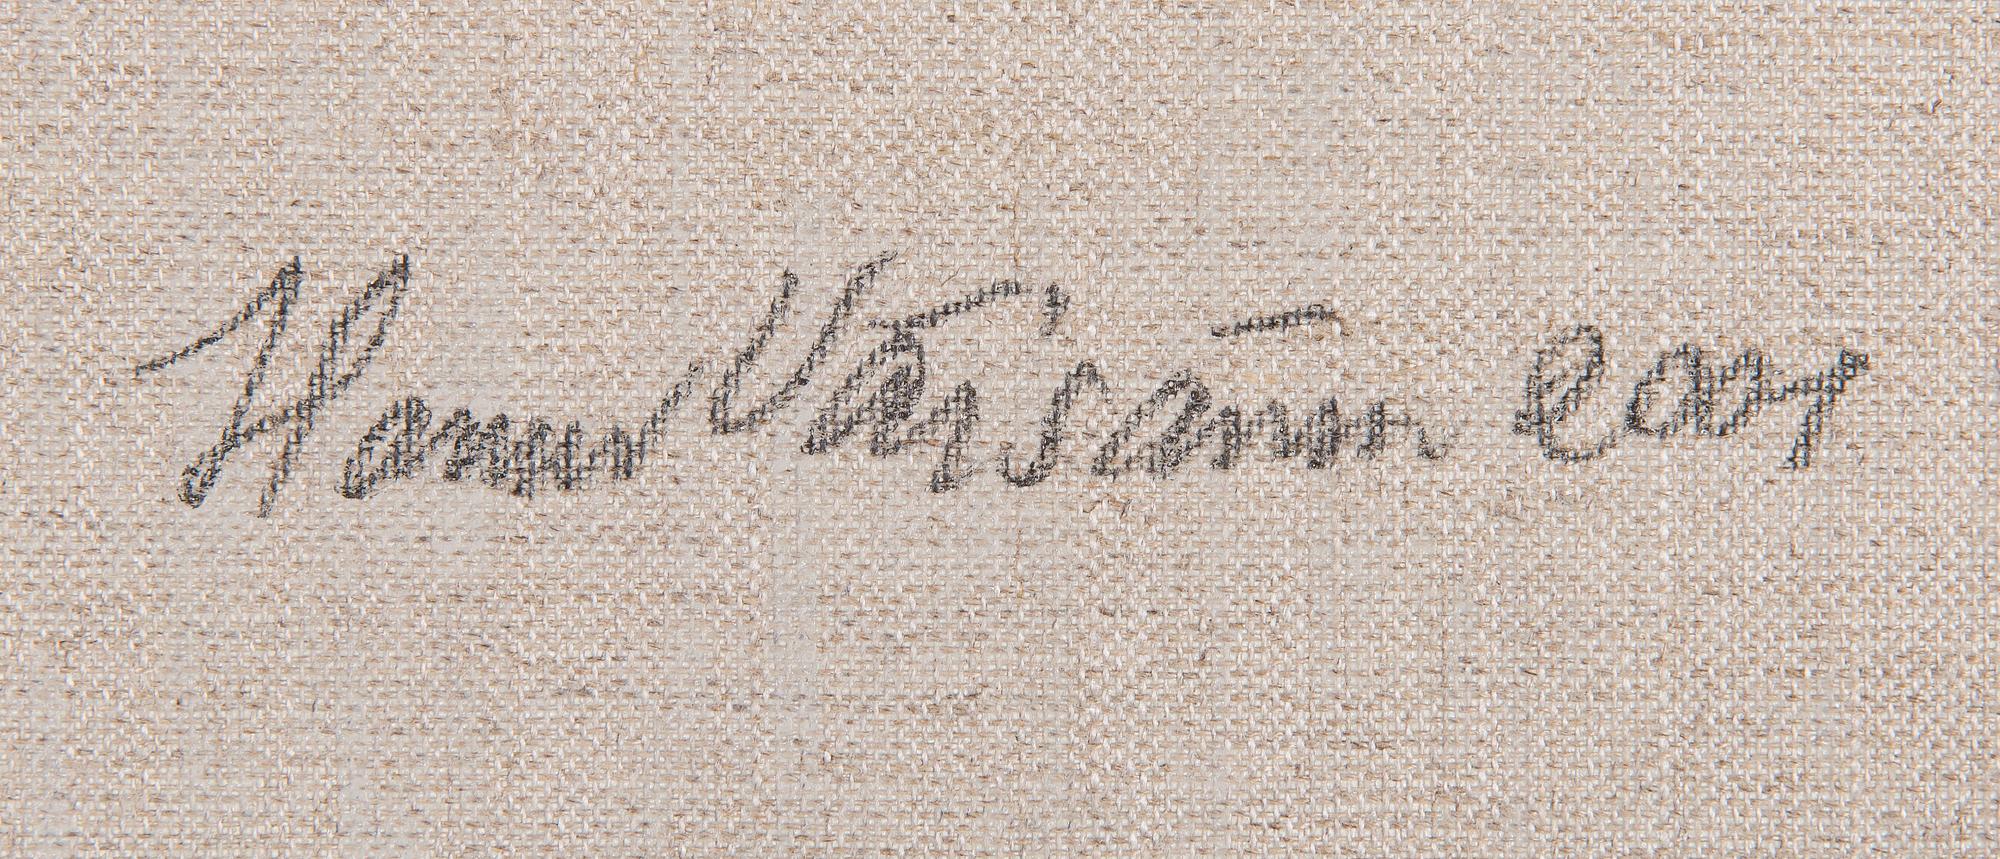 Hannu Väisänen 2007